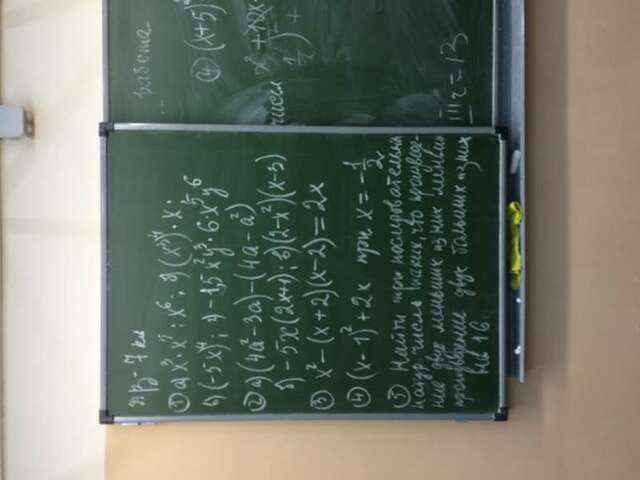 пр3 - 7 кл
① а) x³·x⁵ : x⁶; б) (x³)⁴·x;
в) (-5x)⁴; г) -1,5x²y³·6·x⁵y⁶
② а) (4a²-3a)-(4a-a²)
б) -5x(2x+1); в) (2-x²)(x-3)
③ x²-(x+2)(x-2)=2x
④ (x-1)²+2x при x=-1/2
⑤ Найти три последовательн
натур. числа таких, что произведе-
ние двух меньших из них меньше
произведение двух больших из них
на 16
работа
④ (x+5)
x²+10x
чисел
1/2)² +
III г = 13